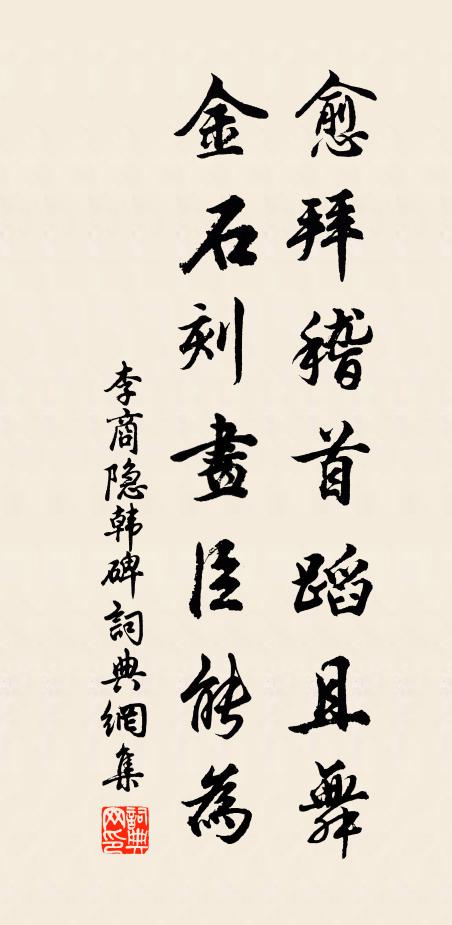 愈拜稽首蹈且舞
金石刻畫臣能為
李商隐韩碑詞典網集
詞典网印